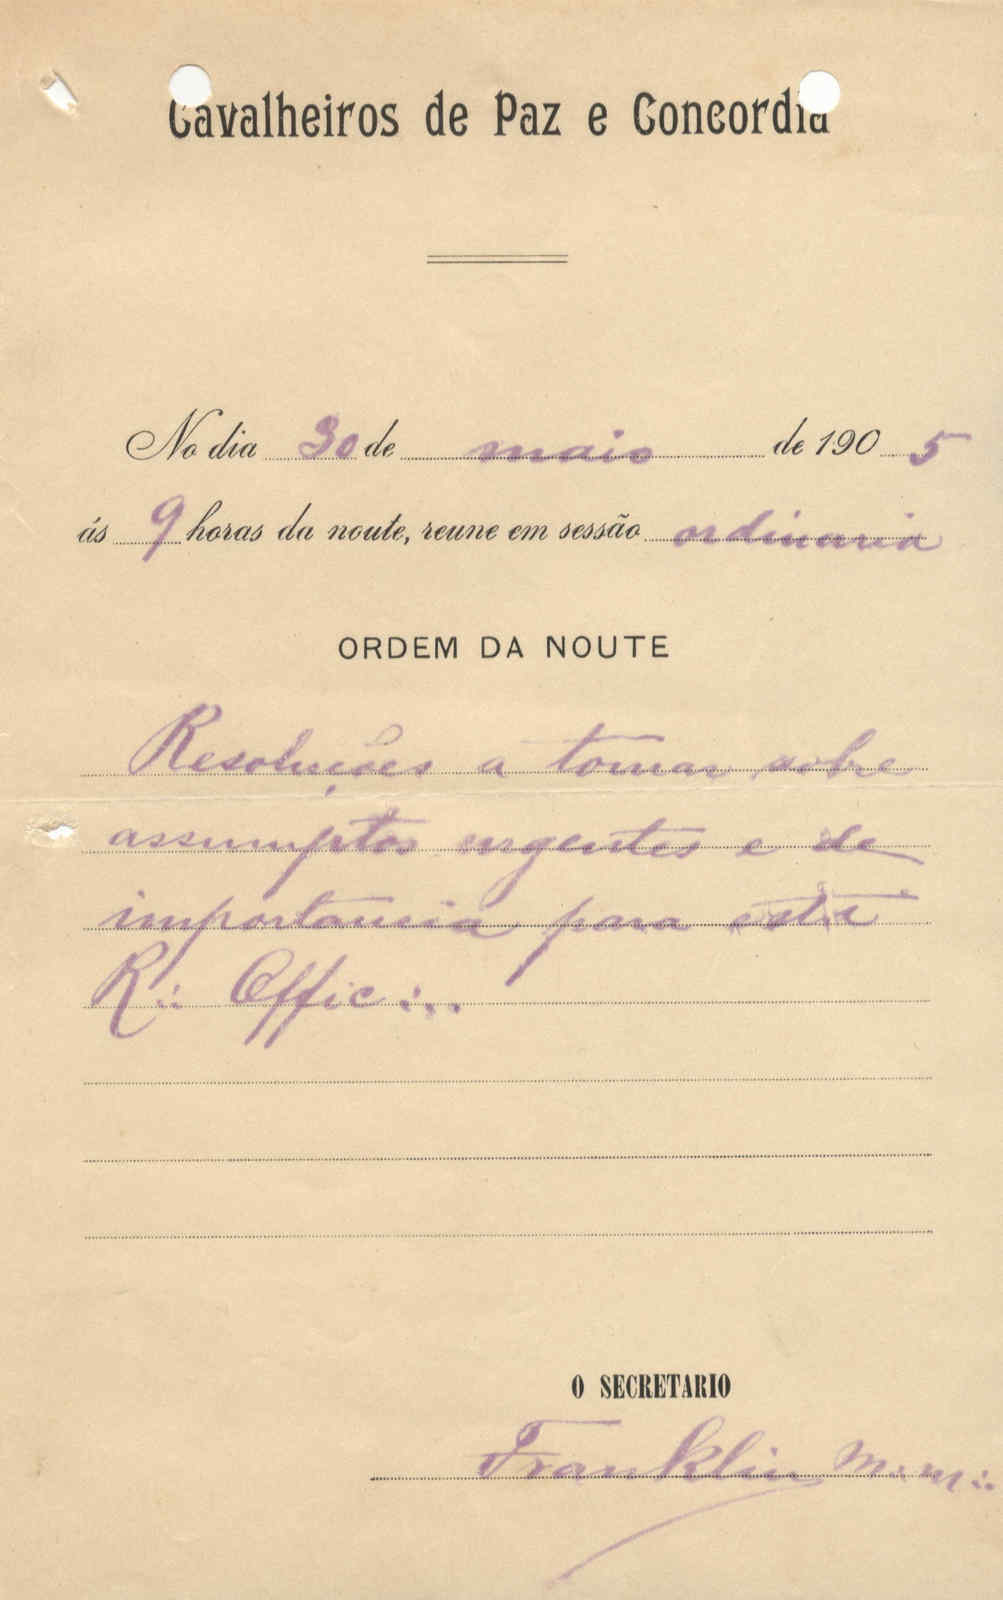 Cavalheiros de Paz e Concordia
No dia 30 de maio de 1905
ás 9 horas da noute, reune em sessão ordinaria
ORDEM DA NOUTE
Resoluções a tomar sobre
assumptos urgentes e de
importancia para esta
R∴ Offic∴
O SECRETARIO
Franklin M∴M∴